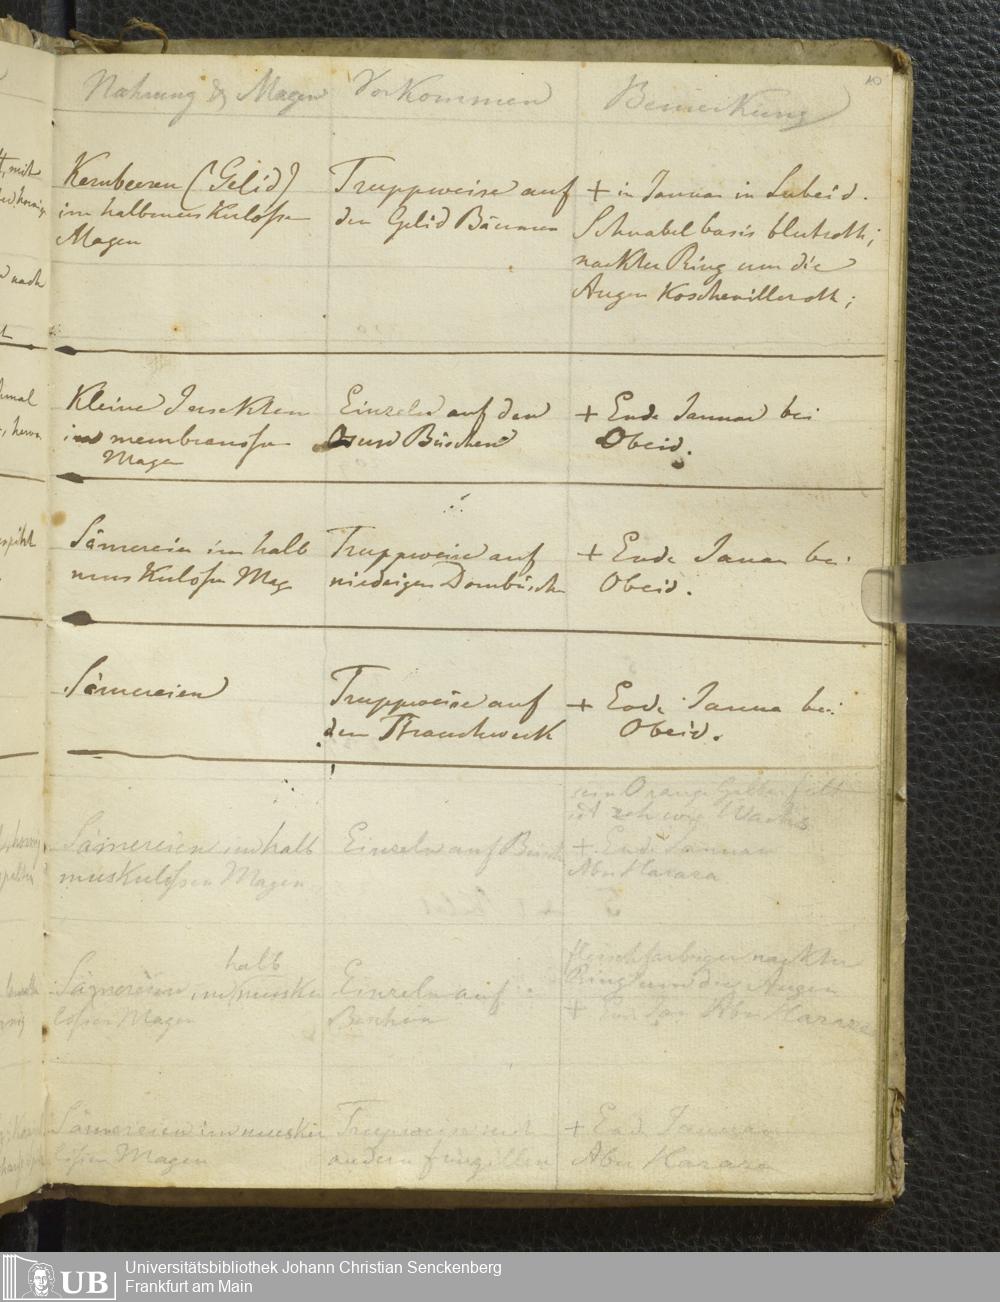 10
Nahrung & Magen
Vorkommen
Bemerkung
Kernbeeren (Gelid)
im halbmuskulosen
Magen
Truppweise auf
den Gelid Bäumen
+ in Januar in Lubeid.
Schnabelbasis blutroth;
nackter Ring um die
Augen Koschenilleroth;
Kleine Insekten
im membranosen
Magen
Einzeln auf den
und Büschen
+ Ende Januar bei
Obeid.
Sämereien im halb
muskulosen Mag
Truppweise auf
niedrigen Dornbüsch
+ Ende Januar bei
Obeid.
Sämereien
Truppweise auf
dem Strauchwerk
+ Ende Januar bei
Obeid.
Sämereien im halb
muskulosen Magen
Einzeln auf Büsch
sein Orange Gelbes
ist wie Wachs
+ Ende Januar
Abu Haraza
halb
Sämereien im musku
losen Magen
Einzeln auf
Büschen
fleischfarbiger nackter
Ring um die Augen
+ End Jan Abu Haraza
Sämereien im musku
losen Magen
Truppweise mit
andern fringillen
+ End Januar
Abu Haraza
UB
Universitätsbibliothek Johann Christian Senckenberg
Frankfurt am Main